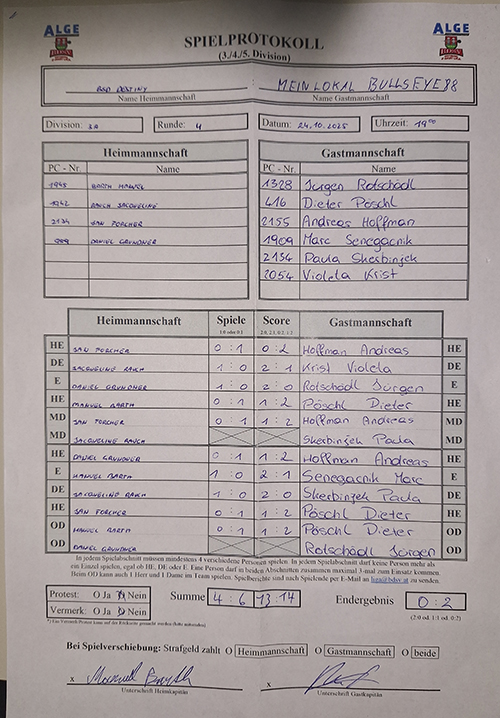 ALGE ALGE
SPIELPROTOKOLL
(3./4./5. Division)
BSD DESTINY : MEIN LOKAL BULLSEYE88
Name Heimmannschaft Name Gastmannschaft
Division: 3A Runde: 4 Datum: 24.10.2025 Uhrzeit: 19⁰⁰
Heimmannschaft Gastmannschaft
PC - Nr. Name PC - Nr. Name
1945 BARTH MANUEL 1328 Jürgen Rotschädl
1942 RAUCH JACQUELINE 416 Dieter Pöschl
2134 JAN PORCHER 2155 Andreas Hoffman
999 DANIEL GRUNDNER 1909 Marc Senegacnik
2154 Paula Skerbinjek
2054 Violeta Krist
Heimmannschaft Spiele Score Gastmannschaft
1:0 oder 0:1 2:0, 2:1, 0:2, 1:2
HE JAN PORCHER 0 : 1 0 : 2 Hoffman Andreas HE
DE JACQUELINE RAUCH 1 : 0 2 : 1 Krist Violeta DE
E DANIEL GRUNDNER 1 : 0 2 : 0 Rotschädl Jürgen E
HE MANUEL BARTH 0 : 1 1 : 2 Pöschl Dieter HE
MD JAN PORCHER 0 : 1 1 : 2 Hoffman Andreas MD
MD JACQUELINE RAUCH Skerbinjek Paula MD
HE DANIEL GRUNDNER 0 : 1 1 : 2 Hoffman Andreas HE
E MANUEL BARTH 1 : 0 2 : 1 Senegacnik Marc E
DE JACQUELINE RAUCH 1 : 0 2 : 0 Skerbinjek Paula DE
HE JAN PORCHER 0 : 1 1 : 2 Pöschl Dieter HE
OD MANUEL BARTH 0 : 1 1 : 2 Pöschl Dieter OD
OD DANIEL GRUNDNER Rotschädl Jürgen OD
In jedem Spielabschnitt müssen mindestens 4 verschiedene Personen spielen. In jedem Spielabschnitt darf keine Person mehr als
ein Einzel spielen, egal ob HE, DE oder E. Eine Person darf in beiden Abschnitten zusammen maximal 3-mal zum Einsatz kommen.
Beim OD kann auch 1 Herr und 1 Dame im Team spielen. Spielberichte sind nach Spielende per E-Mail an liga@bdsv.at zu senden.
Protest: O Ja O Nein Summe 4 : 6 13 : 14 Endergebnis 0 : 2
Vermerk: O Ja O Nein (2:0 od. 1:1 od. 0:2)
*) Ein Vermerk/Protest kann auf der Rückseite gemacht werden (bitte ankreuzen)
Bei Spielverschiebung: Strafgeld zahlt O Heimmannschaft O Gastmannschaft O beide
x Manuel Barth x
Unterschrift Heimkapitän Unterschrift Gastkapitän